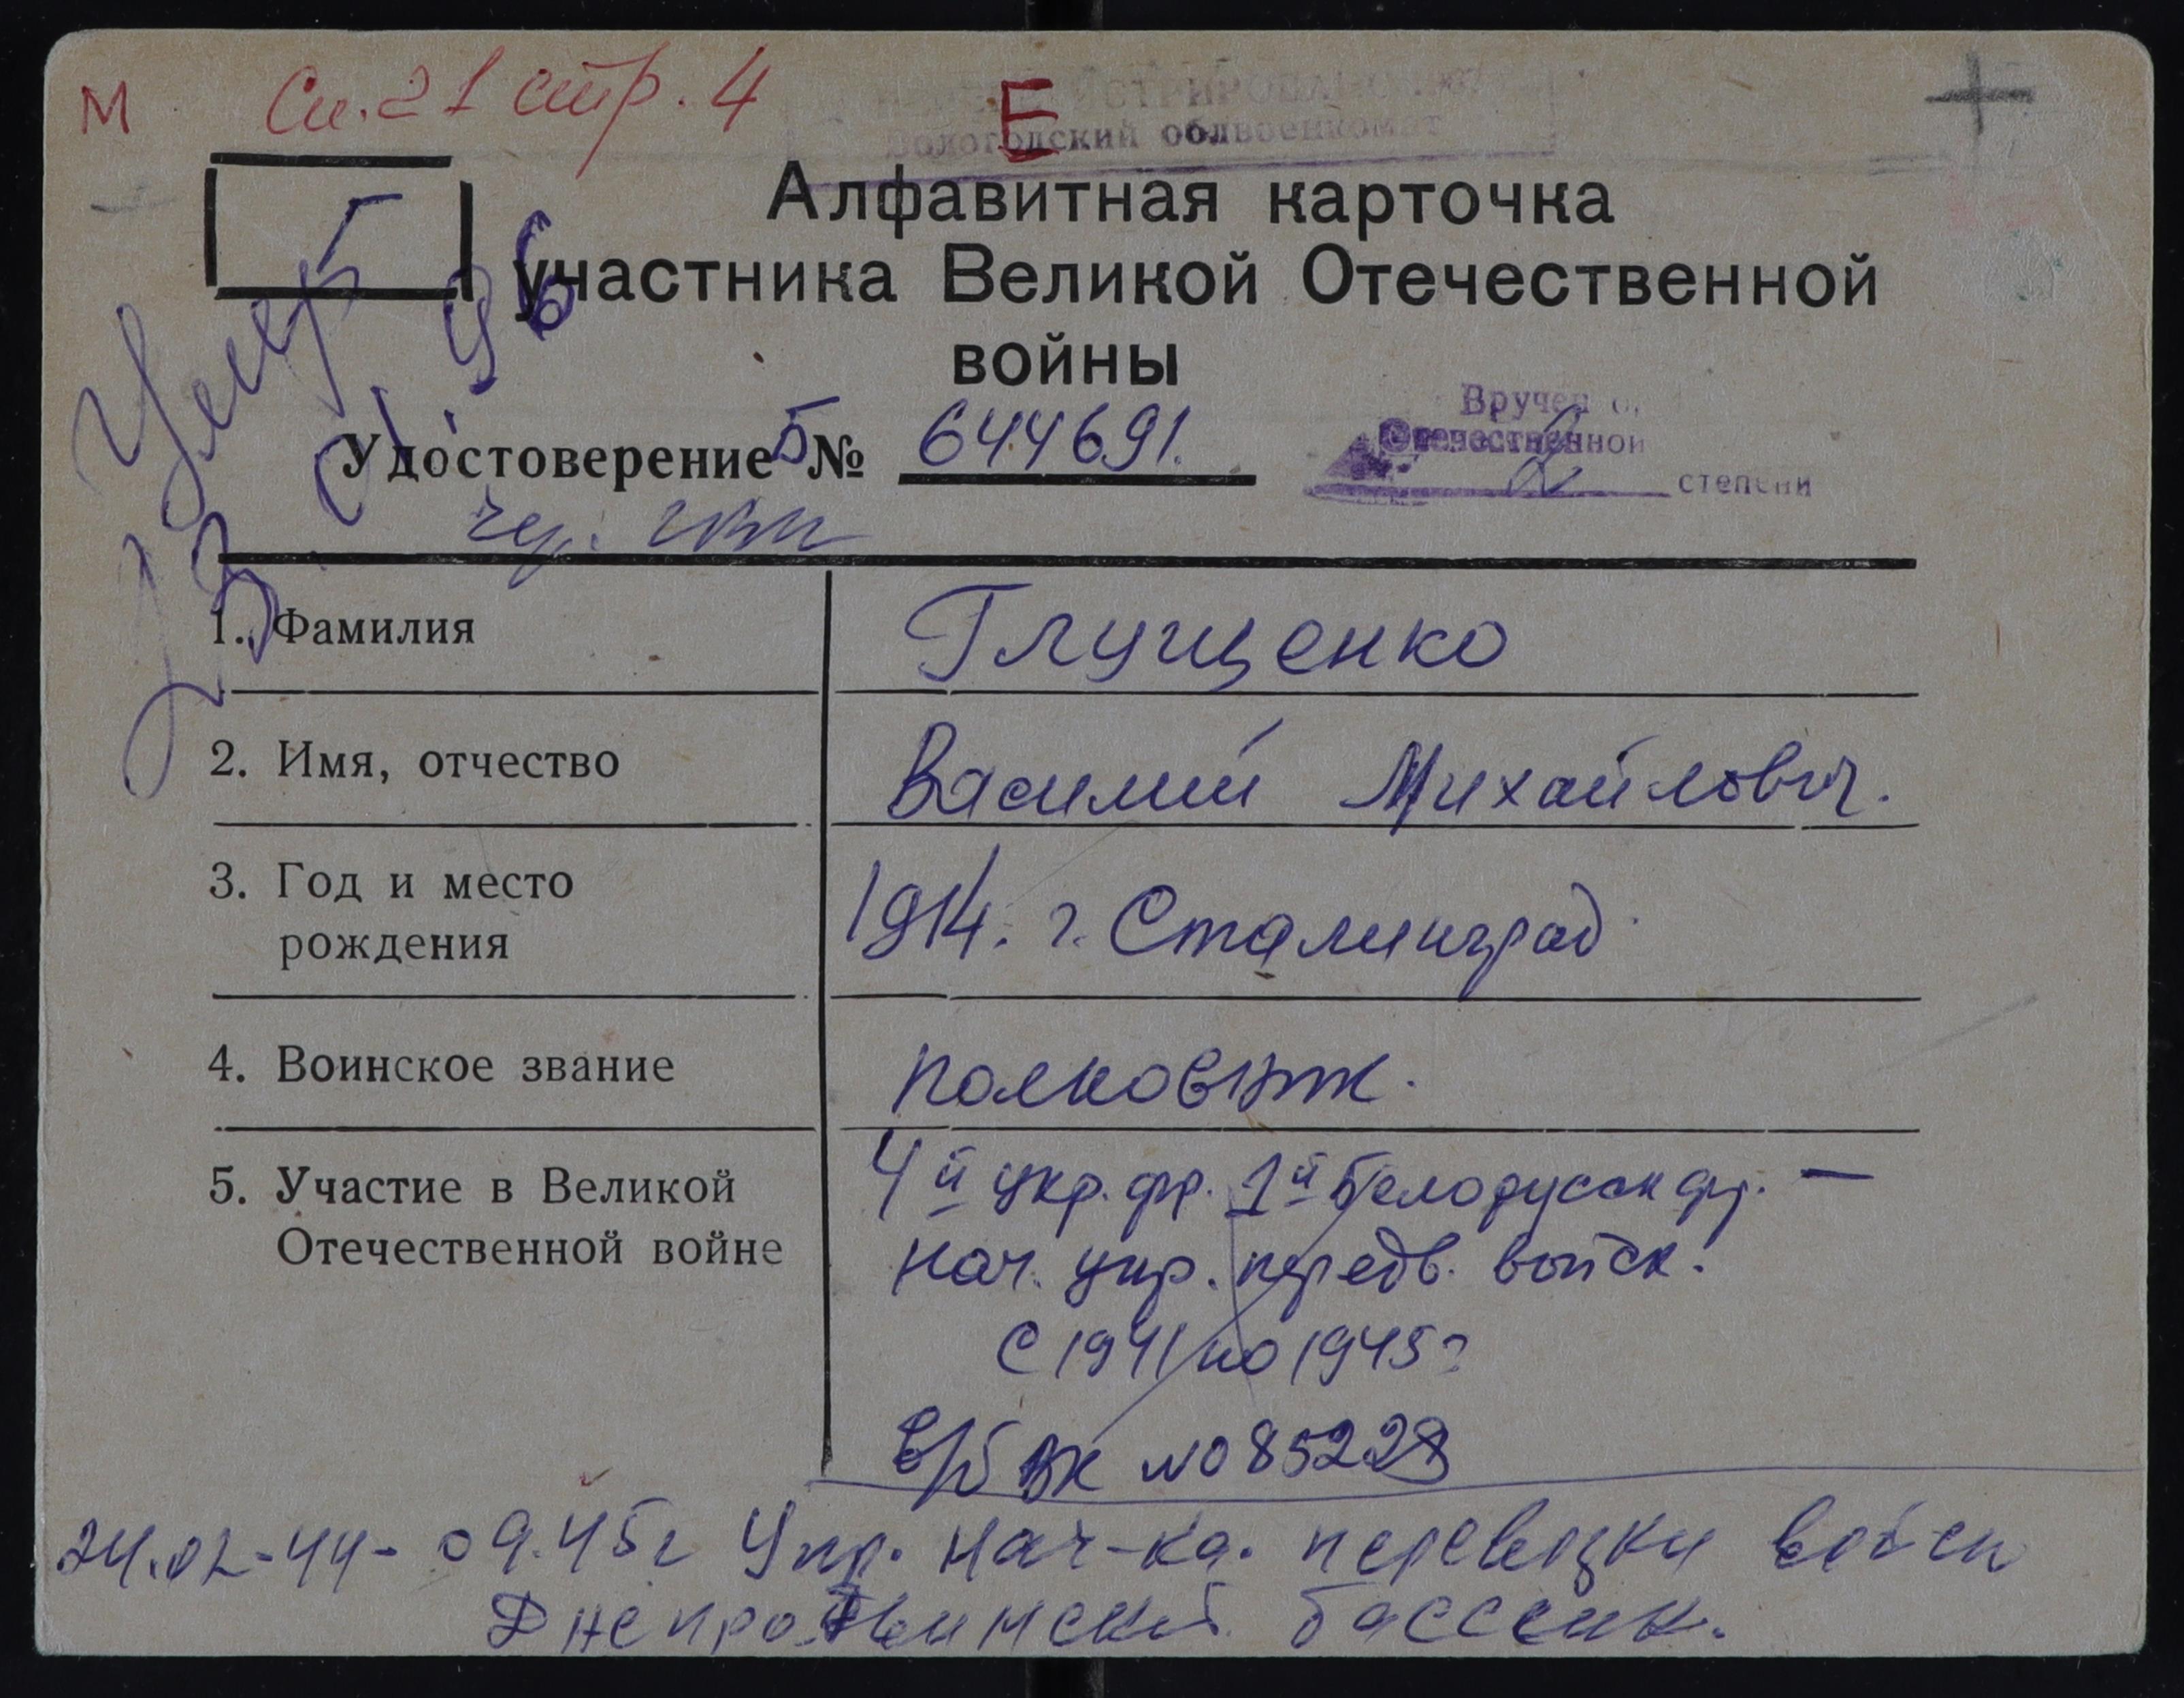 М Сп. 21 стр. 4 Е
Вологодский облвоенкомат
Г
Алфавитная карточка
участника Великой Отечественной
войны
Умер
23.01.96
Удостоверение Б № 644691.
Вручен о.
Отечественной
2 степени
1. Фамилия Глущенко
2. Имя, отчество Василий Михайлович.
3. Год и место
рождения 1914. г. Сталинград
4. Воинское звание полковник.
5. Участие в Великой
Отечественной войне
4й укр. фр. 1й Белорусск фр. —
нач. упр. передв. войск.
С 1941 по 1945 г
ВК № 085228
24.02-44- 09.45г Упр. нач-ка. перевозки войск
Днепро-Двинский бассейн.